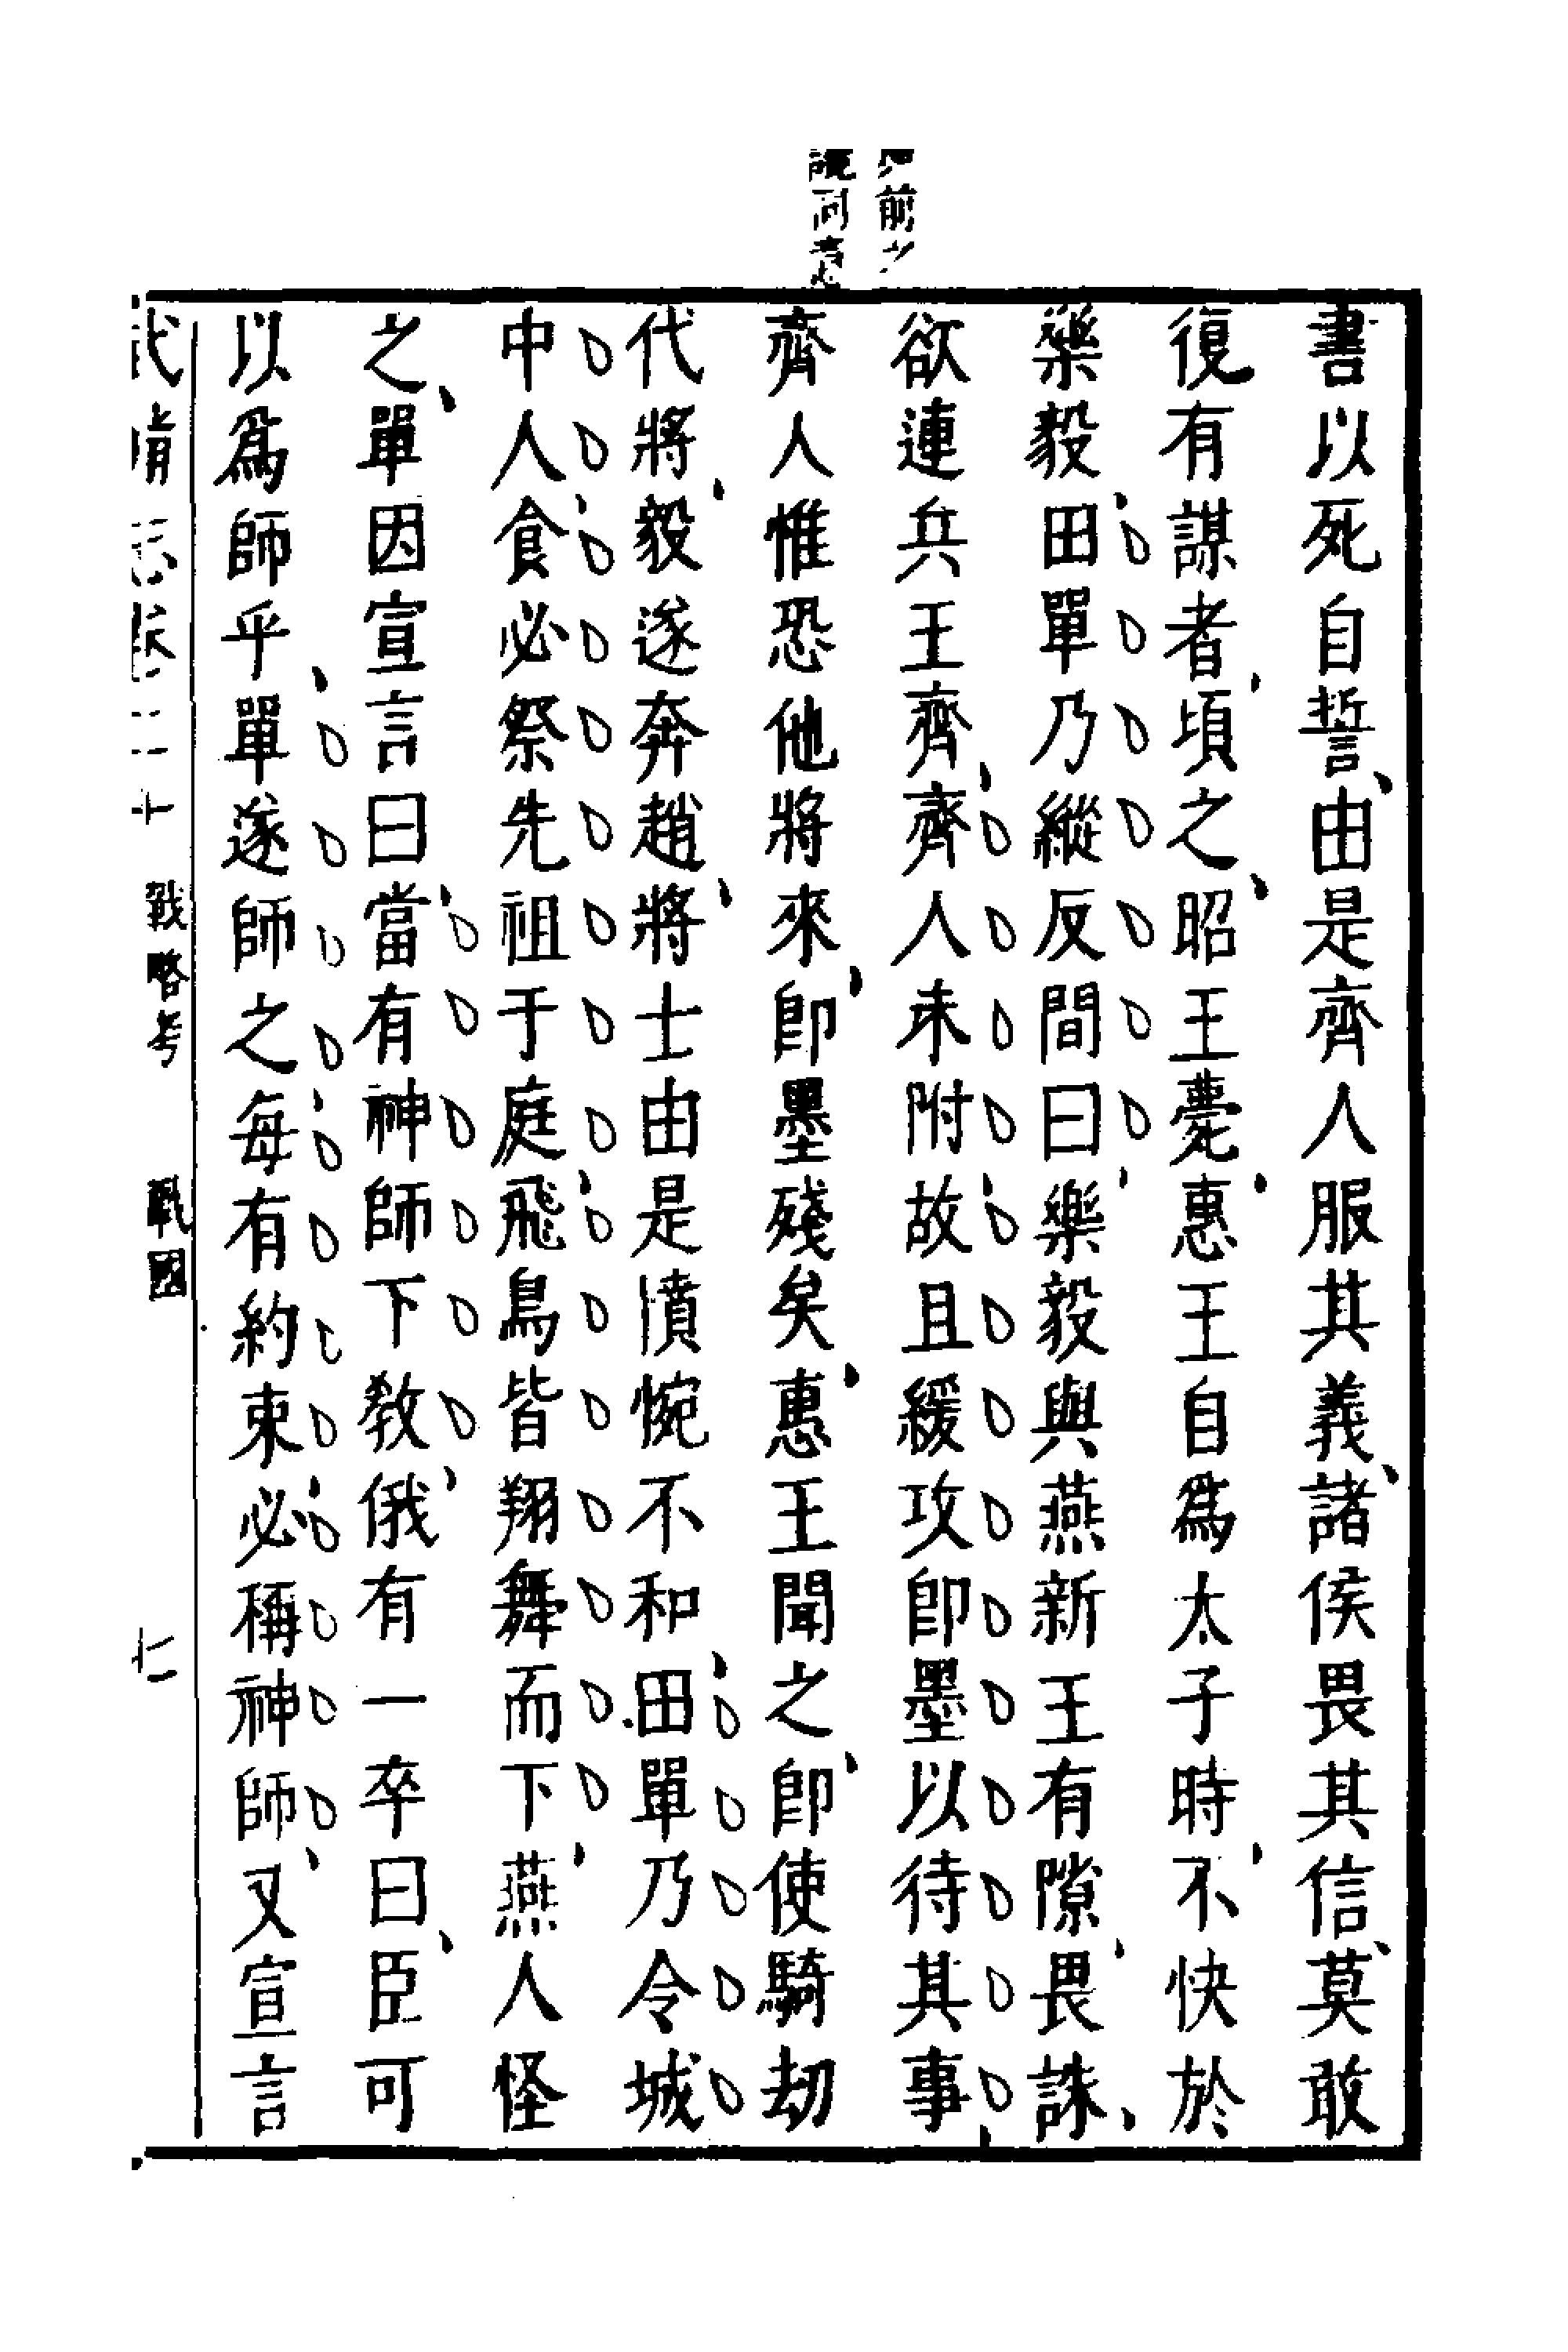 前之
同意
書以死自誓由是齊人服其義諸侯畏其信莫敢
復有謀者頃之昭王薨惠王自爲太子時不快於
樂毅田單乃縱反間曰樂毅與燕新王有隙畏誅
欲連兵王齊齊人未附故且緩攻卽墨以待其事
齊人惟恐他將來卽墨殘矣惠王聞之卽使騎劫
代將毅遂奔趙將士由是憤惋不和田單乃令城
中人食必祭先祖于庭飛鳥皆翔舞而下燕人怪
之單因宣言曰當有神師下教俄有一卒曰臣可
以爲師乎單遂師之每有約束必稱神師又宣言
戰略考 戰國